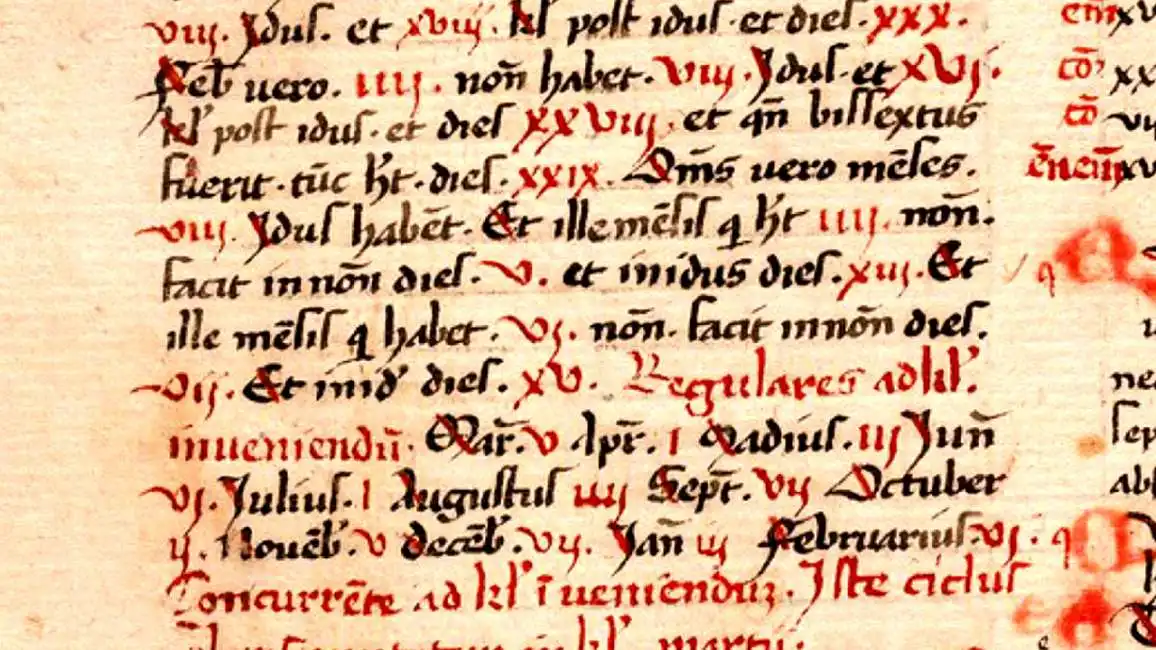 viij. Jdus. et xviij. kl' post idus. et dies. xxx.
Feb̄ uero. iiij. non̄ habet. viij. Jdus. et xvj.
kl' post idus. et dies xxviij. et qn̄ bissextus
fuerit. tūc h̄t. dies. xxix. Om̄s uero mēses.
viij. Jdus habēt. Et ille mēsis q h̄t iiij. non̄.
facit in nōn dies. v. et in idus dies. xiij. Et
ille mēsis q habet. vj. nōn. facit in nōn dies.
vij. Et in id' dies. xv. Regulares ad kl'.
inueniendū. Mar̄. v Apr̄. i Madius. iij Jun̄
vj. Julius. i Augustus iiij Sept̄. vij Octuber
ij. Nouēb'. v decēb'. vij. Jan̄ iij februarius. vj.
Concurrēte ad kl' īueniendū. Jste ciclus
kl' martij.
em̄ xv
cō xx
cō vij
xv
q
ne
sep
ab
q